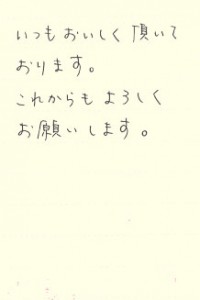 いつもおいしく頂いて
おります。
これからもよろしく
お願いします。